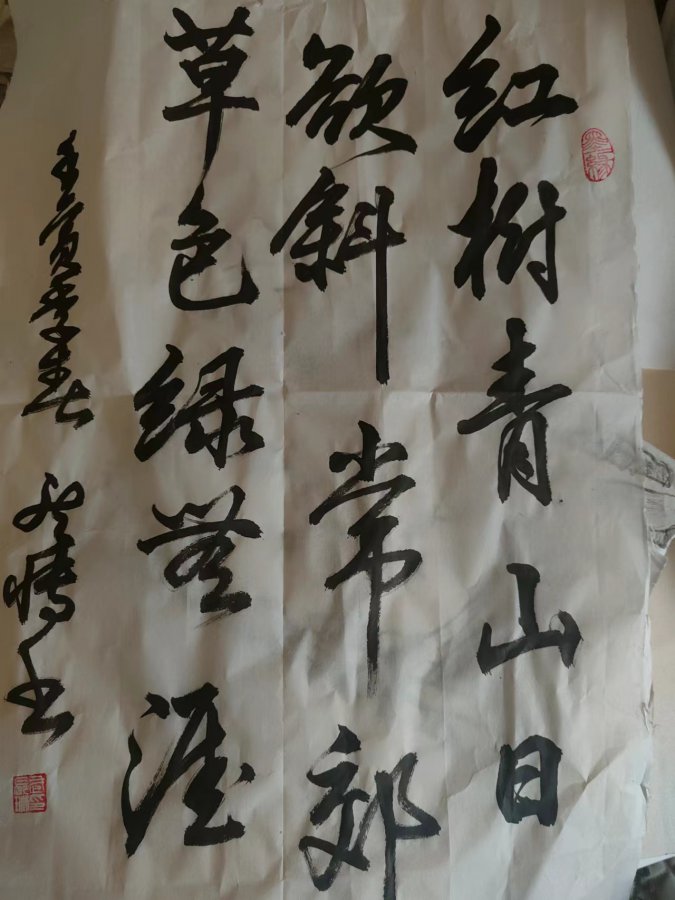 红树青山日
欲斜常郊
草色绿无涯
壬寅季春
书